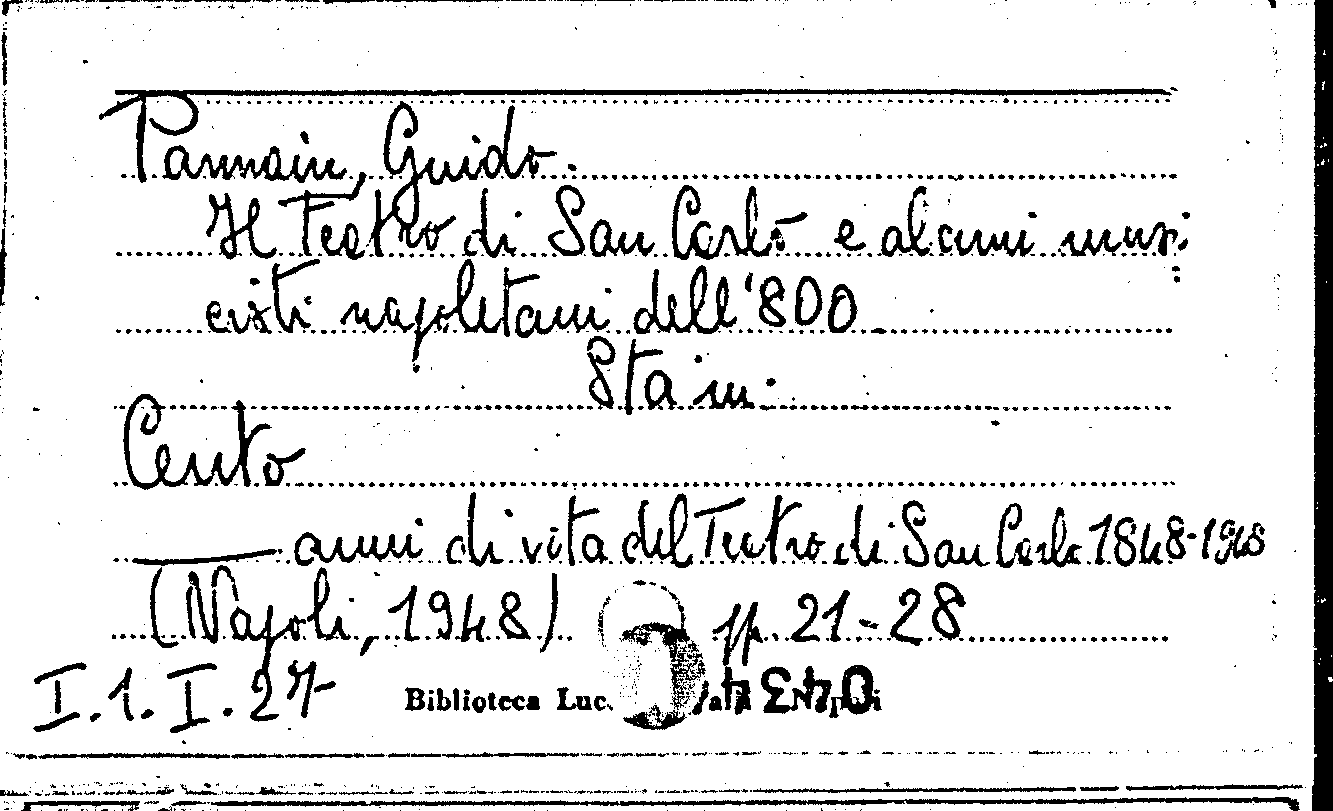 Pannain, Guido.
Il Teatro di San Carlo e alcuni musi:
cisti napoletani dell'800
Sta in:
Cento
anni di vita del Teatro di San Carlo 1848-1948
(Napoli, 1948) pp. 21-28
I.1.I.27
Biblioteca Luc.